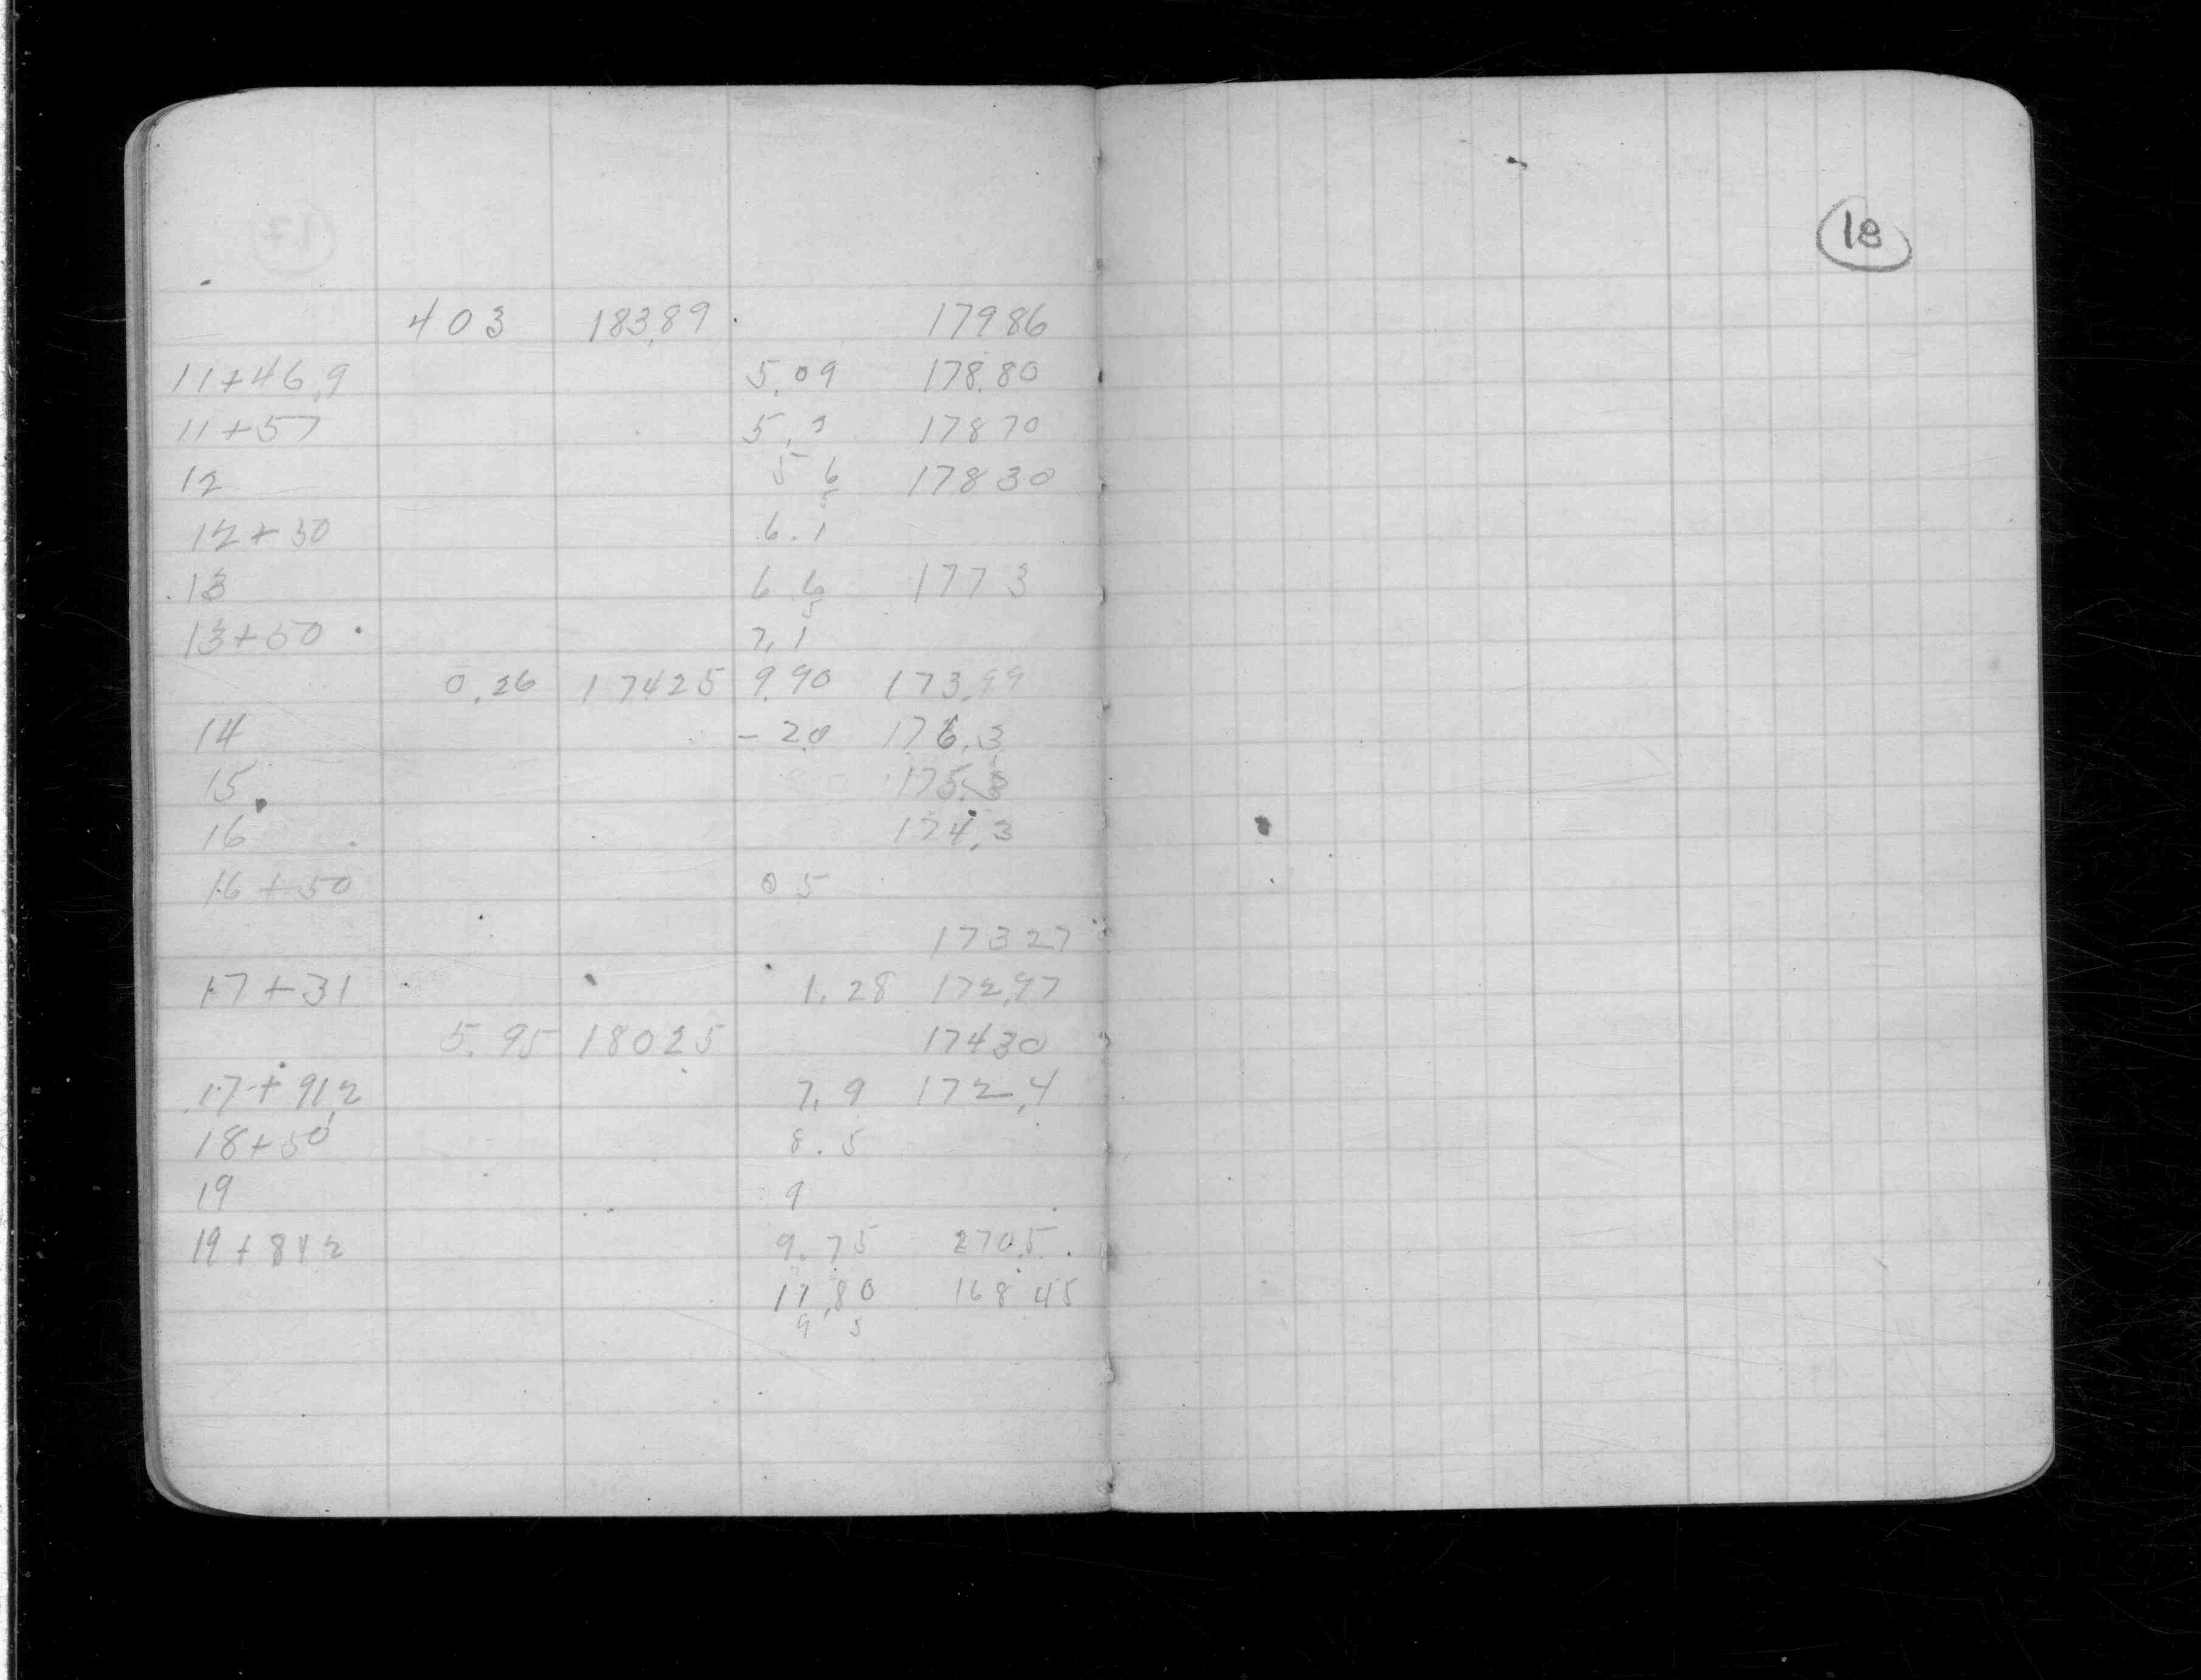 403 183,89 17986
11+46,9 5.09 178.80
11+57 5,2 17870
12 5 6 17830
5
12+50 6.1
13 6 6 177 3
5
13+50 7,1
0.26 17425 9.90 173.99
14 -20 176.3
15 175.3
16 174.3
16+50 0 5
17327
17+31 1.28 172,97
5.95 18025 17430
17+91,2 7,9 172,4
18+50 8.5
19 9
19+842 9.75 270,5
11,80 168 45
9 5
18